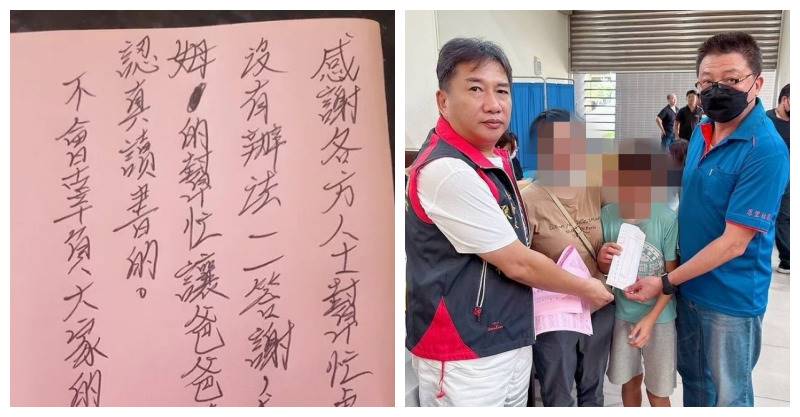 感謝各方人士幫忙
沒有辦法一一答謝，
姆的幫忙讓爸爸
認真讀書的。
不會辜負大家的